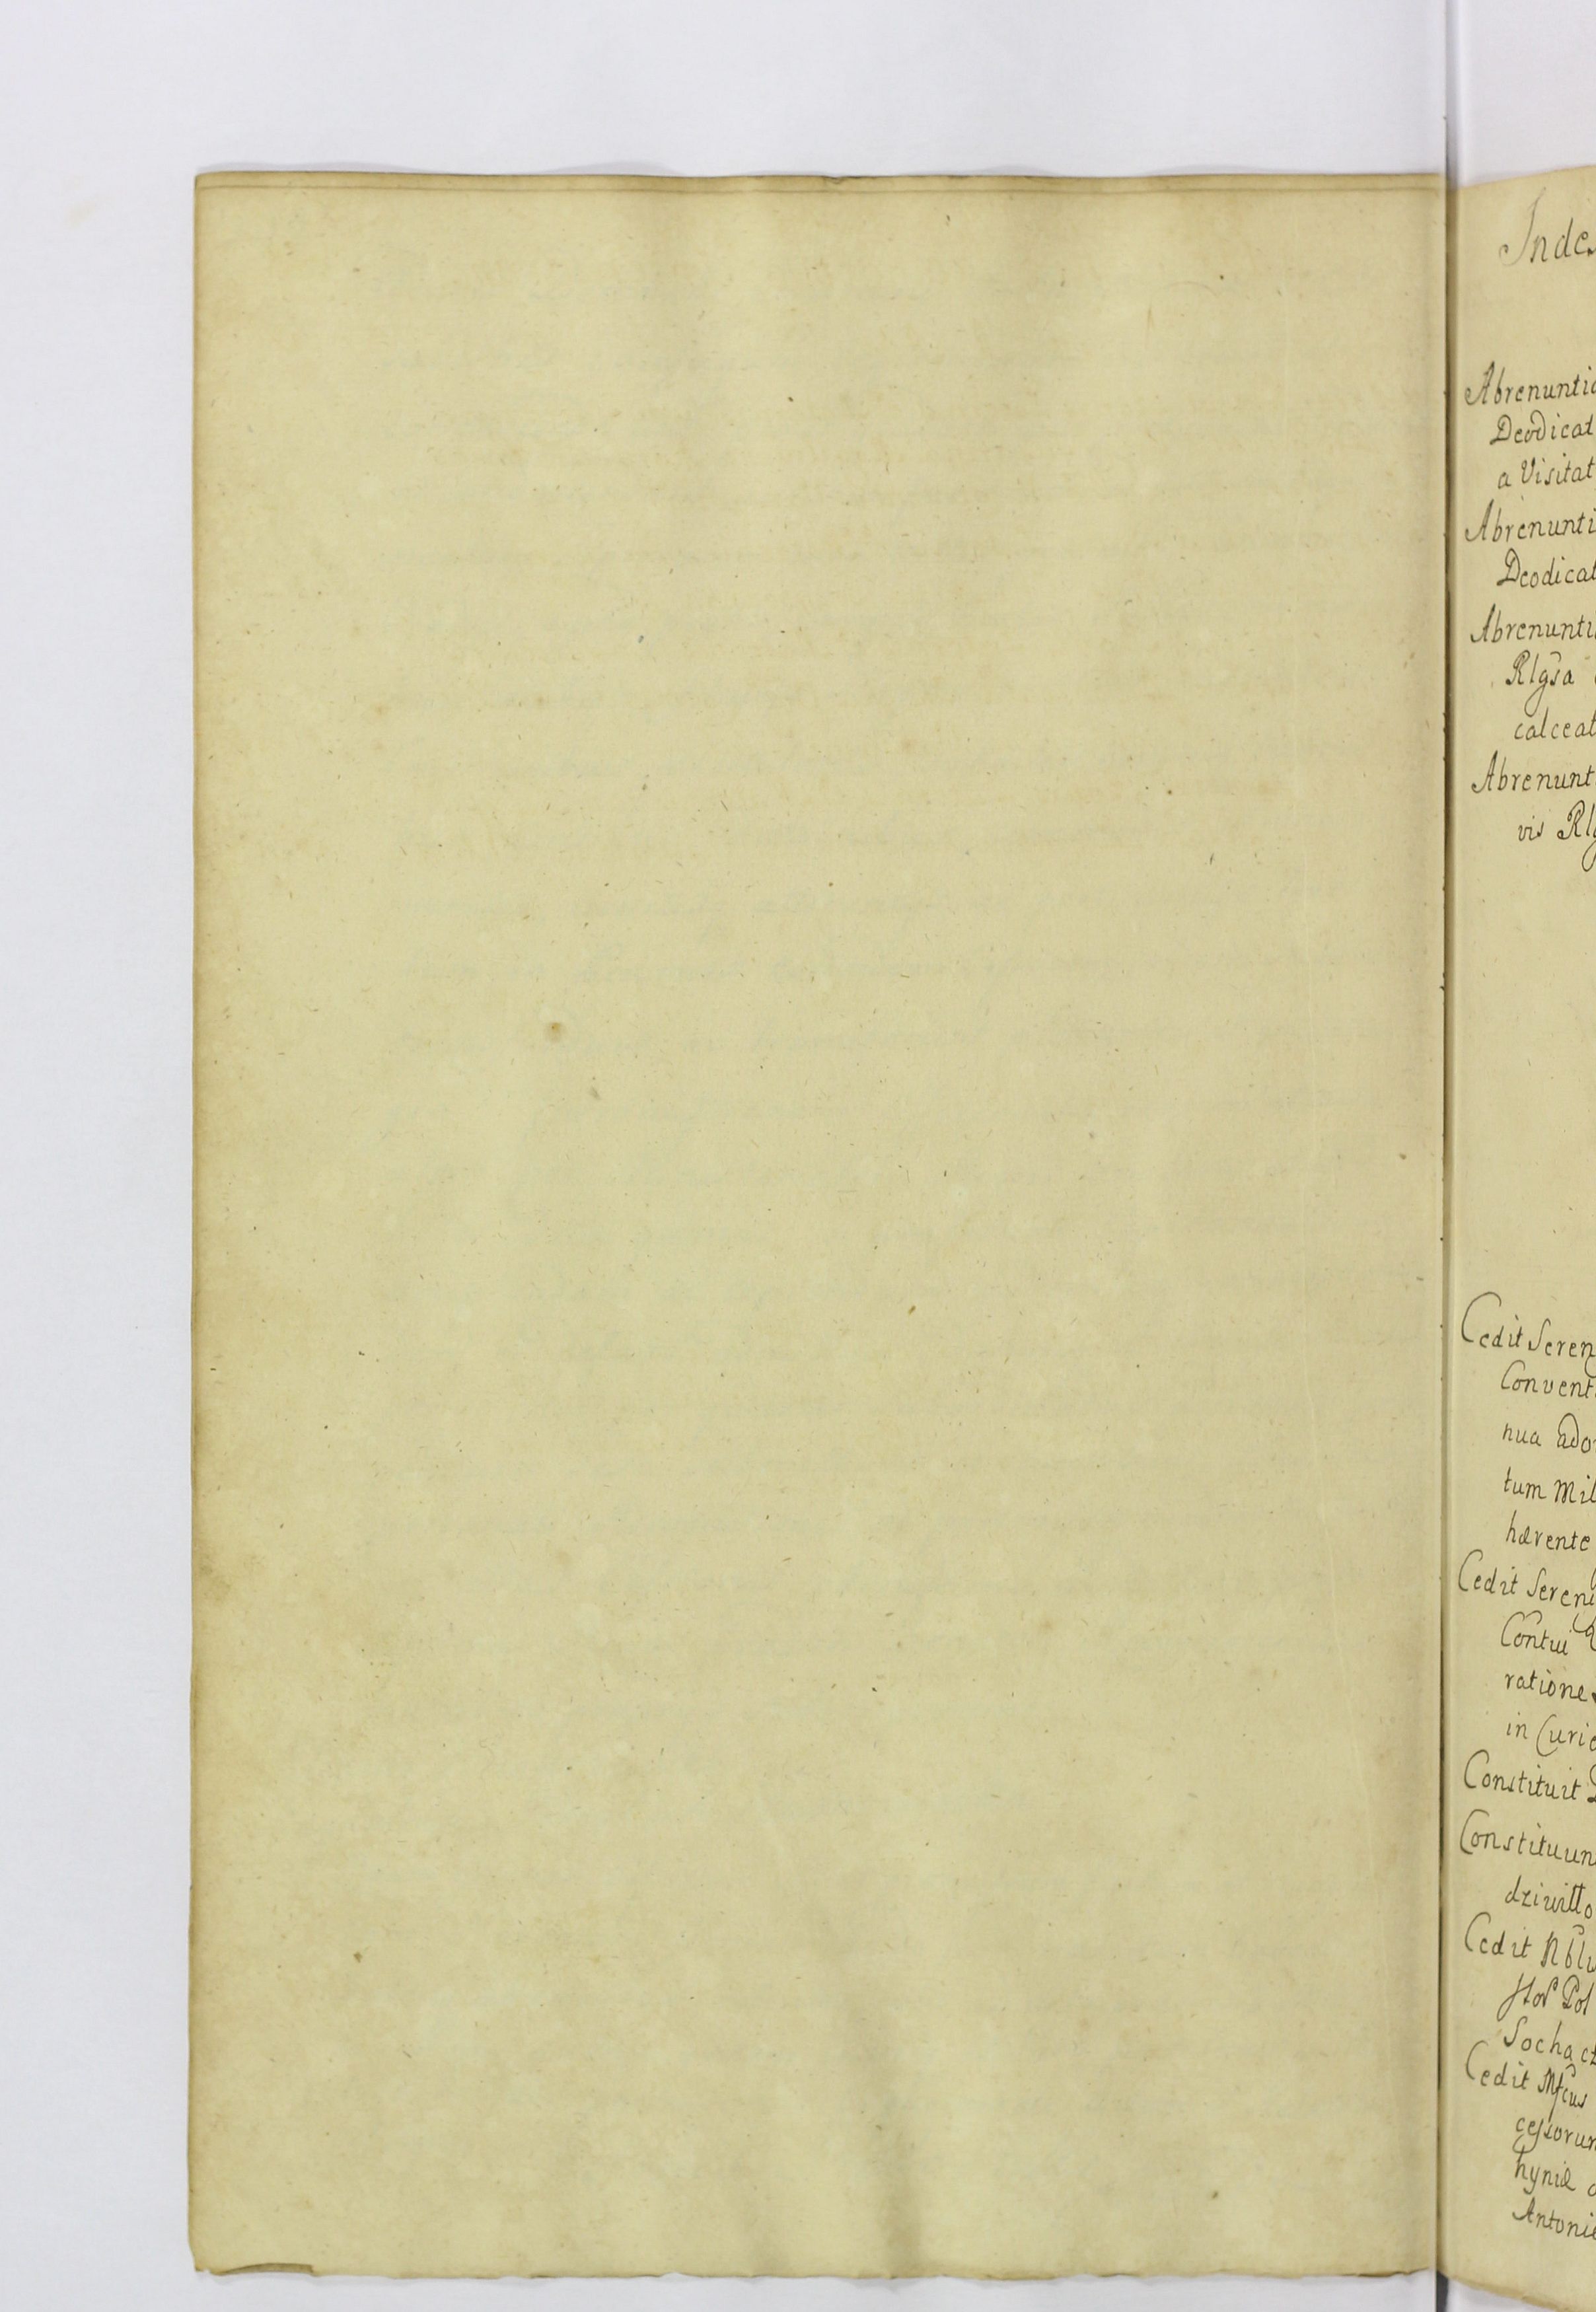 Inde
Abrenuntia
Deodicat
a Visitat
Abrenunti
Deodicat
Abrenunti
Rlgsa
calceat
Abrenunt
vis Rlg
Cedit Seren
Convent
nua ado
tum Mil
hærente
Cedit Sereni
Contui
ratione
in Curi
Constituit
Constituun
dziwitto
Cedit Nblu
Pol
Sochact
Cedit Mfcus
cessorum
hyniæ
Antoni